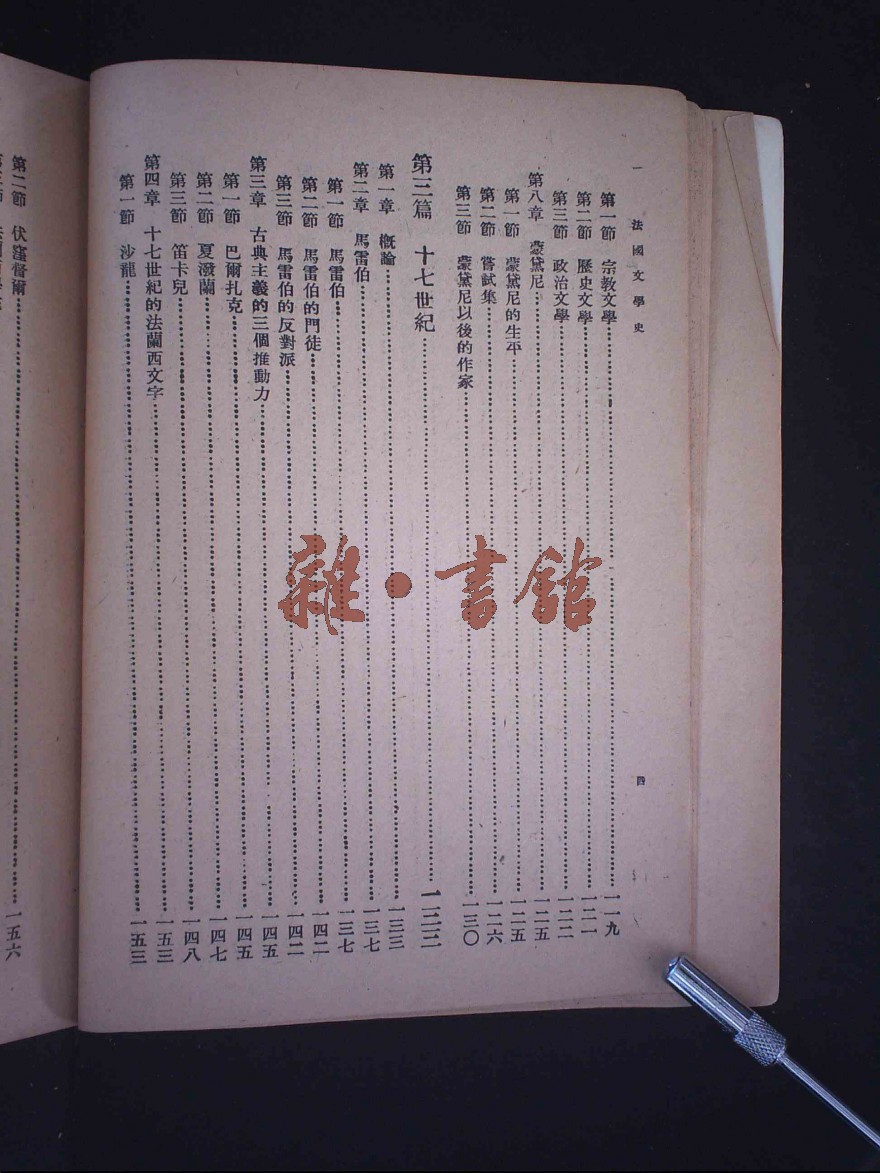 法國文學史
四
第一節 宗教文學……一一九
第二節 歷史文學……一二一
第三節 政治文學……一二二
第八章 蒙黛尼……一二五
第一節 蒙黛尼的生平……一二五
第二節 嘗試集……一二六
第三節 蒙黛尼以後的作家……一三〇
第三篇 十七世紀……一三三
第一章 概論……一三三
第二章 馬雷伯……一三七
第一節 馬雷伯……一三七
第二節 馬雷伯的門徒……一四二
第三節 馬雷伯的反對派……一四二
第三章 古典主義的三個推動力……一四五
第一節 巴爾扎克……一四五
第二節 夏潑蘭……一四七
第三節 笛卡兒……一四八
第四章 十七世紀的法蘭西文字……一五三
第一節 沙龍……一五三
第二節 伏窪督爾……一五六
雜·書館